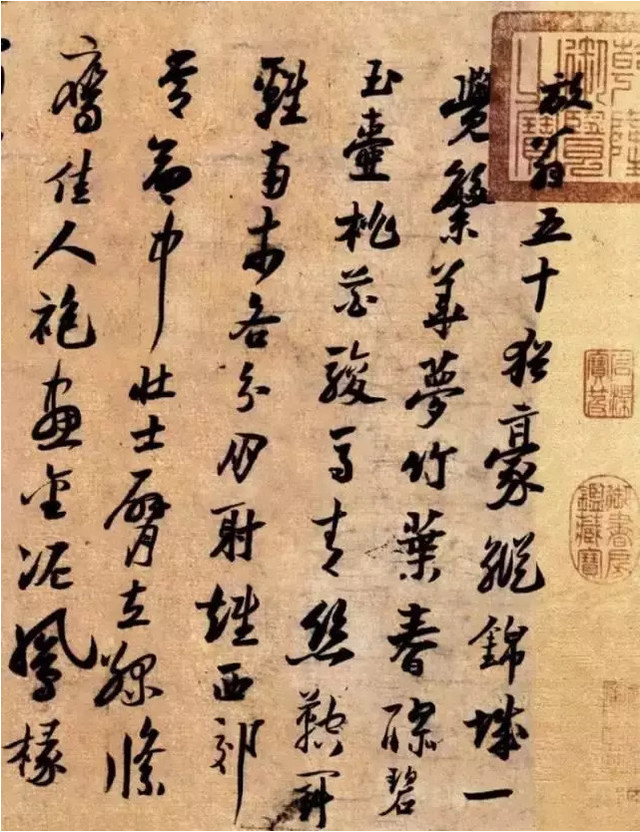 放翁五十猶豪縱錦城一
覺繁華夢竹葉春醪碧
玉壺桃花駿馬青絲鞚鬥
雞南市各分朋射雉西郊
常命中壯士臂立綠絛
鷹佳人袍畫金泥鳳椽
乾隆御覽之寶
石渠寶笈
御書房鑑藏寶